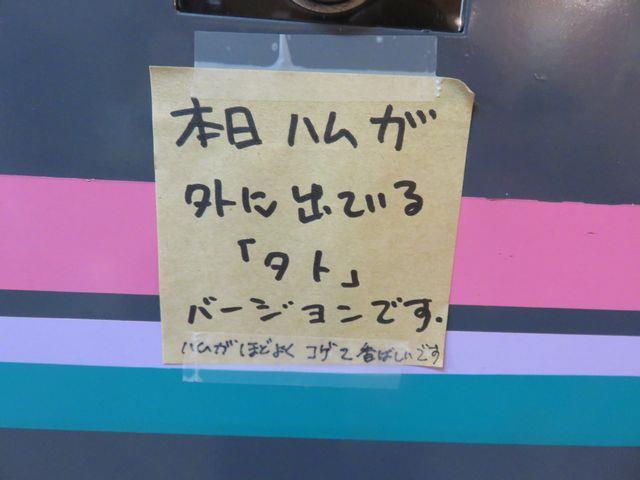 本日ハムが
外に出ている
「タト」
バージョンです.
ハムがほどよくコゲて香ばしいです